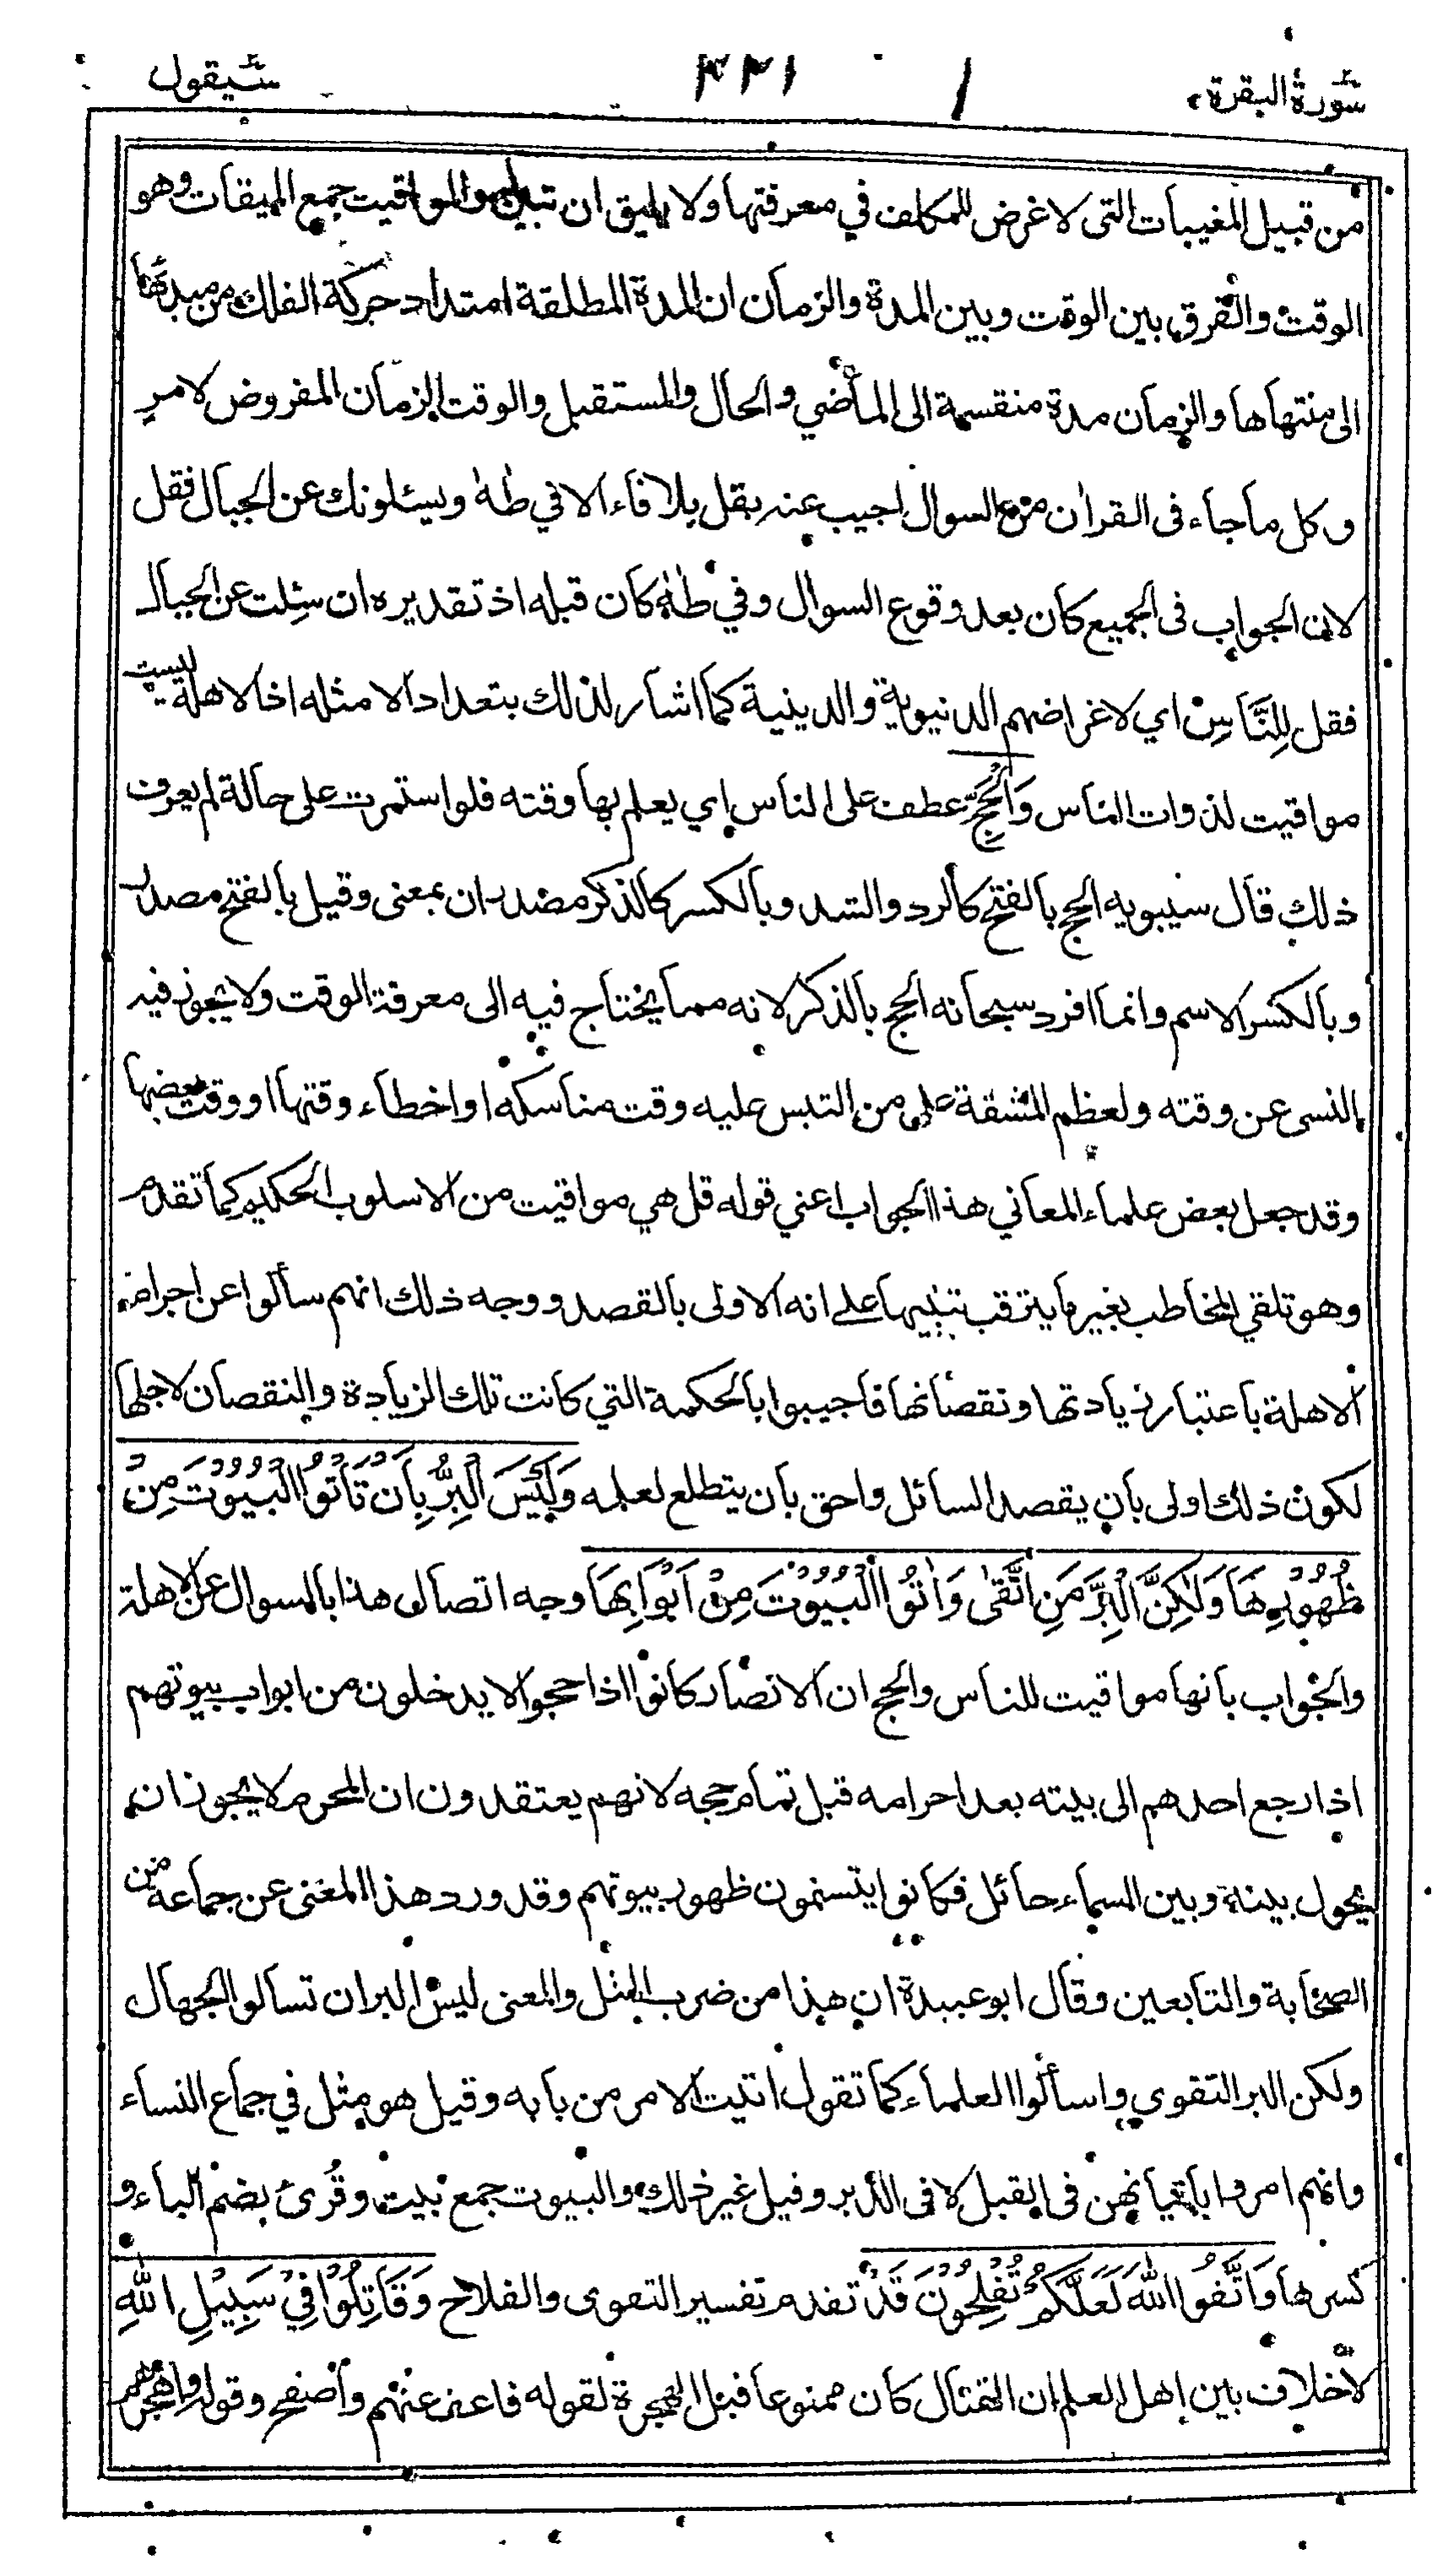 سورة البقرة ١ ٢٢١ سيقول
من قبيل المغيبات التى لا غرض للمكلف في معرفتها ولا يليق ان تبين والمواقيت جمع الميقات وهو
الوقت والفرق بين الوقت وبين المدة والزمان ان المدة المطلقة امتداد حركة الفلك من مبدئها
الى منتهاها والزمان مدة منقسمة الى الماضي والحال والمستقبل والوقت الزمان المفروض لامر
وكل ما جاء فى القران من السوال اجيب عنه بقل بلا فاء الا في طه ويسئلونك عن الجبال فقل
لان الجواب فى الجميع كان بعد وقوع السوال وفي طه كان قبله اذ تقديره ان سئلت عن الجبال
فقل لِلنَّاسِ اي لاغراضهم الدنيوية والدينية كما اشار لذلك بتعداد الامثله اذ الاهلة ليست
مواقيت لذوات الناس وَالْحَجِّ عطف على الناس اي يعلم بها وقته فلو استمرت على حالة لم يعرف
ذلك قال سيبويه الحج بالفتح كالرد والشد وبالكسر كالذكر مصدران بمعنى وقيل بالفتح مصدر
وبالكسر الاسم وانما افرد سبحانه الحج بالذكر لانه مما يحتاج فيه الى معرفة الوقت ولا يجوز فيه
النسى عن وقته ولعظم المشقة على من التبس عليه وقت مناسكه او اخطاء وقتها او وقت بعضها
وقد جعل بعض علماء المعاني هذا الجواب اعني قوله قل هي مواقيت من الاسلوب الحكيم كما تقدم
وهو تلقي المخاطب بغير ما يترقب تنبيها على انه الاولى بالقصد ووجه ذلك انهم سألوا عن اجرام
الاهلة باعتبار زيادتها ونقصانها فاجيبوا بالحكمة التي كانت تلك الزيادة والنقصان لاجلها
لكون ذلك اولى بان يقصد السائل واحق بان يتطلع لعلمه وَلَيْسَ الْبِرُّ بِاَنْ تَأْتُوا الْبُيُوْتَ مِنْ
ظُهُوْرِهَا وَلٰكِنَّ الْبِرَّ مَنِ اتَّقٰى وَاْتُوا الْبُيُوْتَ مِنْ اَبْوَابِهَا وجه اتصال هذا بالسوال عن الاهلة
والجواب بانها مواقيت للناس والحج ان الانصار كانوا اذا حجوا لا يدخلون من ابواب بيوتهم
اذا رجع احدهم الى بيته بعد احرامه قبل تمام حجه لانهم يعتقدون ان المحرم لا يجوز ان
يحول بينه وبين السماء حائل فكانوا يتسنمون ظهور بيوتهم وقد ورد هذا المعنى عن جماعة من
الصحابة والتابعين وقال ابو عبيدة ان هذا من ضرب المثل والمعنى ليس البر ان تسالوا الجهال
ولكن البر التقوي واسألوا العلماء كما تقول اتيت الامر من بابه وقيل هو مثل في جماع النساء
وانهم امروا باتيانهن فى القبل لا فى الدبر وقيل غير ذلك والبيوت جمع بيت وقُرئ بضم الباء و
كسرها وَاتَّقُوا اللهَ لَعَلَّكُمْ تُفْلِحُوْنَ قَدْ تقدم تفسير التقوى والفلاح وَقَاتِلُوْا فِيْ سَبِيْلِ اللهِ
لا خلاف بين اهل العلم ان القتال كان ممنوعا قبل الهجرة لقوله فاعف عنهم واصفح وقوله واهجرهم